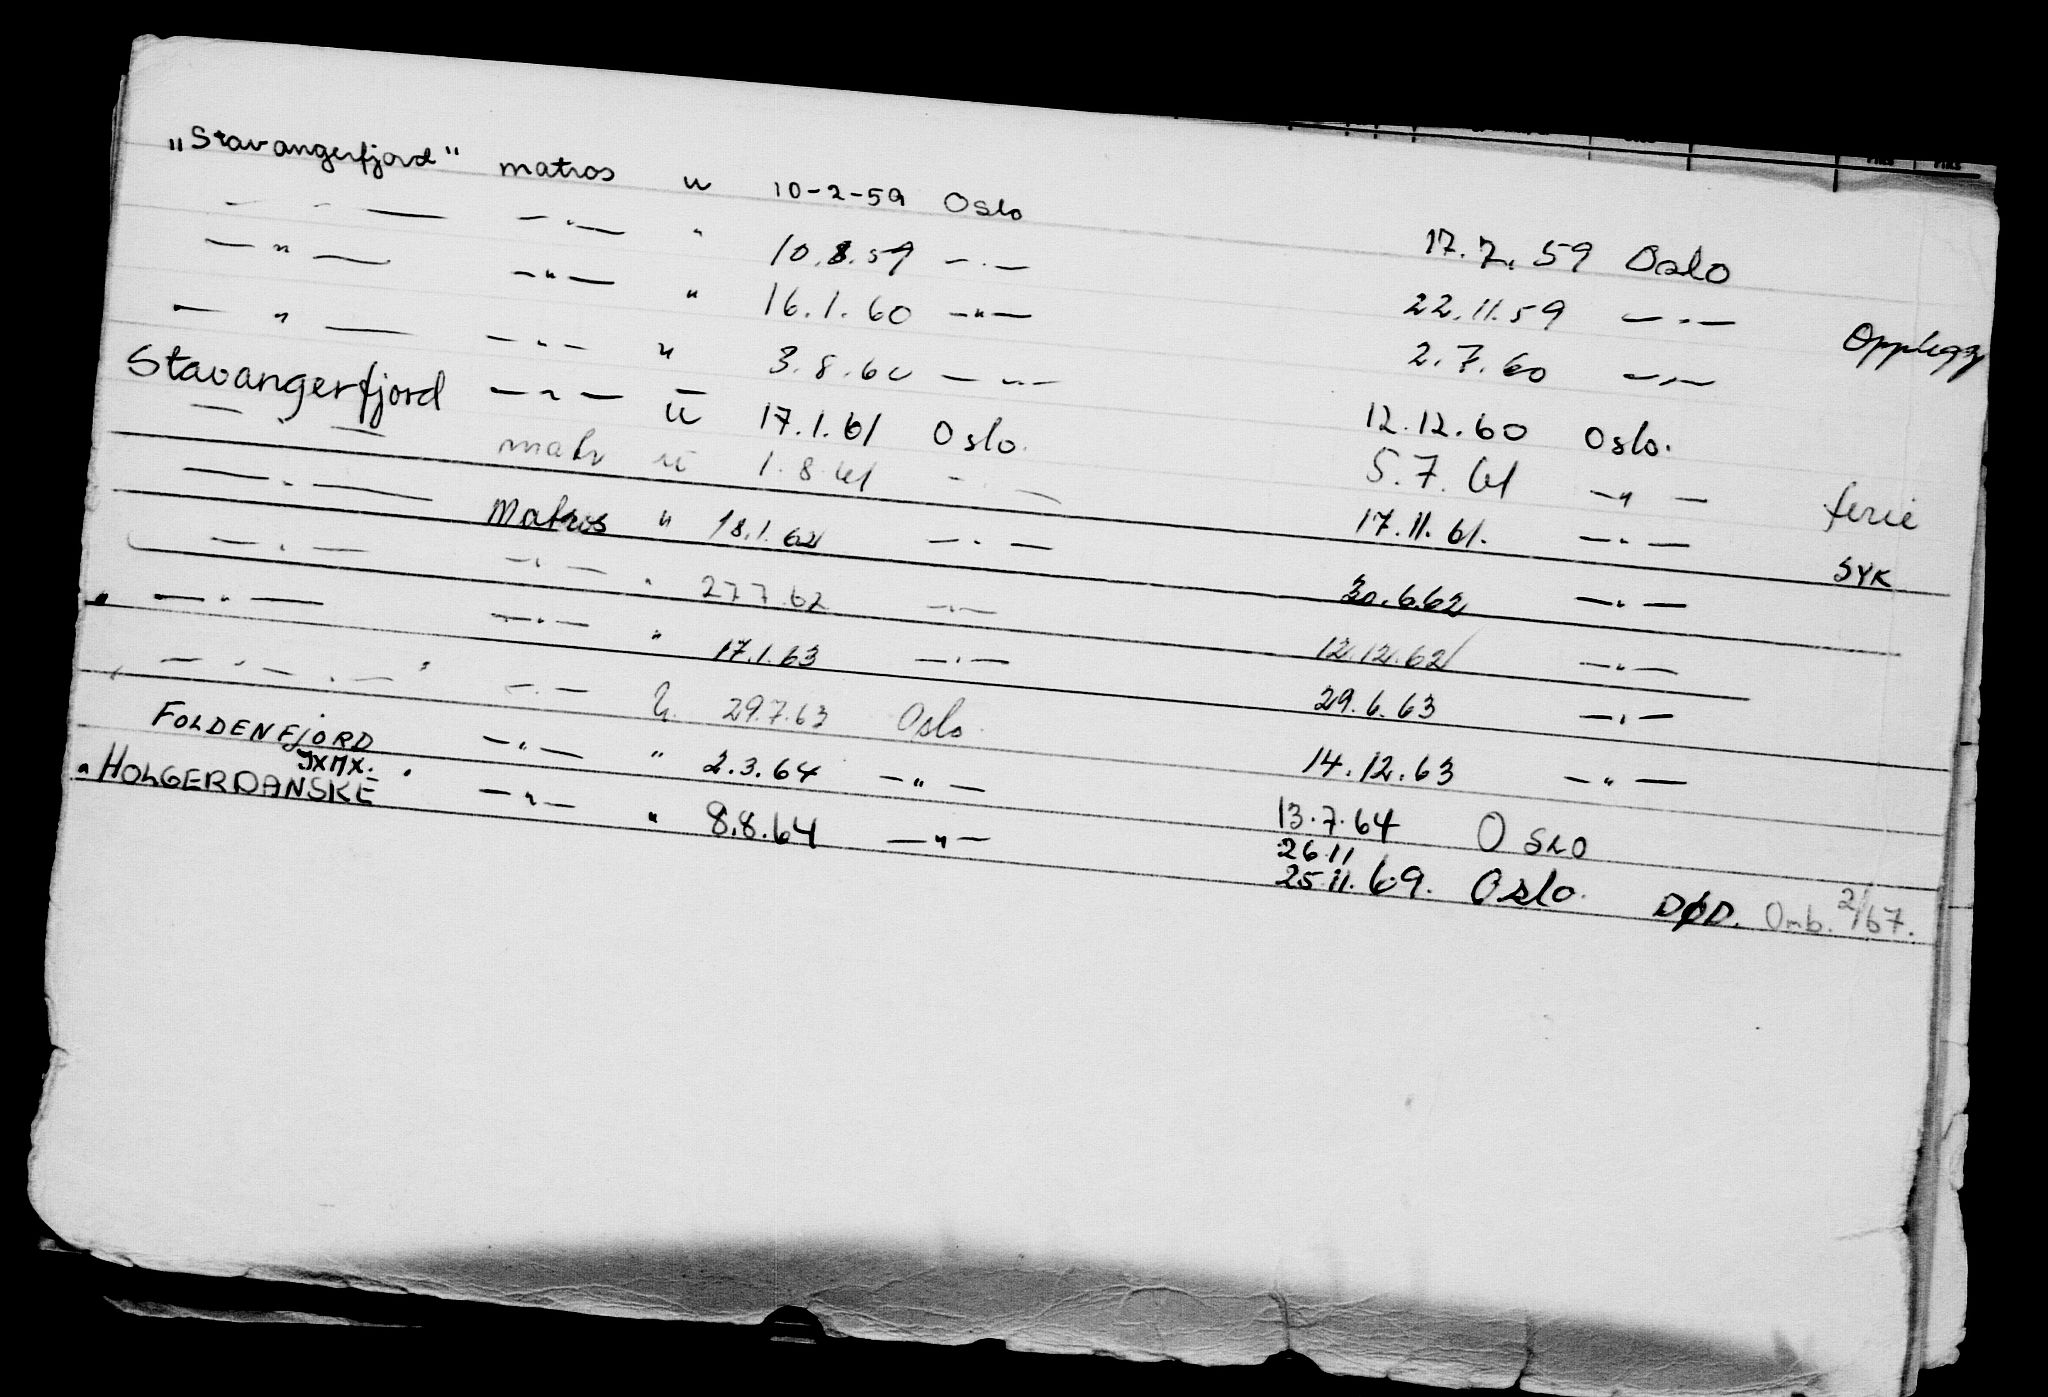 „Stavangerfjord" matros u 10-2-59 Oslo 17.7.59 Oslo
— " — — " — " 10.8.59 — " — 22.11.59 — " — Opplegg
— " — — " — " 16.1.60 — " — 2.7.60 — " —
— " — — " — " 3.8.60 — " — 12.12.60 Oslo.
Stavangerfjord — " — u 17.1.61 Oslo. 5.7.61 — " — ferie
— " — matr u 1.8.61 — " — 17.11.61. — " — SYK
— " — Matros " 18.1.62 — " — 30.6.62 — " —
— " — — " — " 27.7.62 — " — 12.12.62 — " —
— " — — " — " 17.1.63 — " — 29.6.63 — " —
— " — — " — u. 29.7.63 Oslo. 14.12.63 — " —
FOLDENFJORD — " — " 2.3.64 — " — 13.7.64 OSLO
JXMX. 26.11
"HOLGER DANSKE — " — " 8.8.64 — " — 25.11.69. Oslo. DØD. Omb. 2/67.